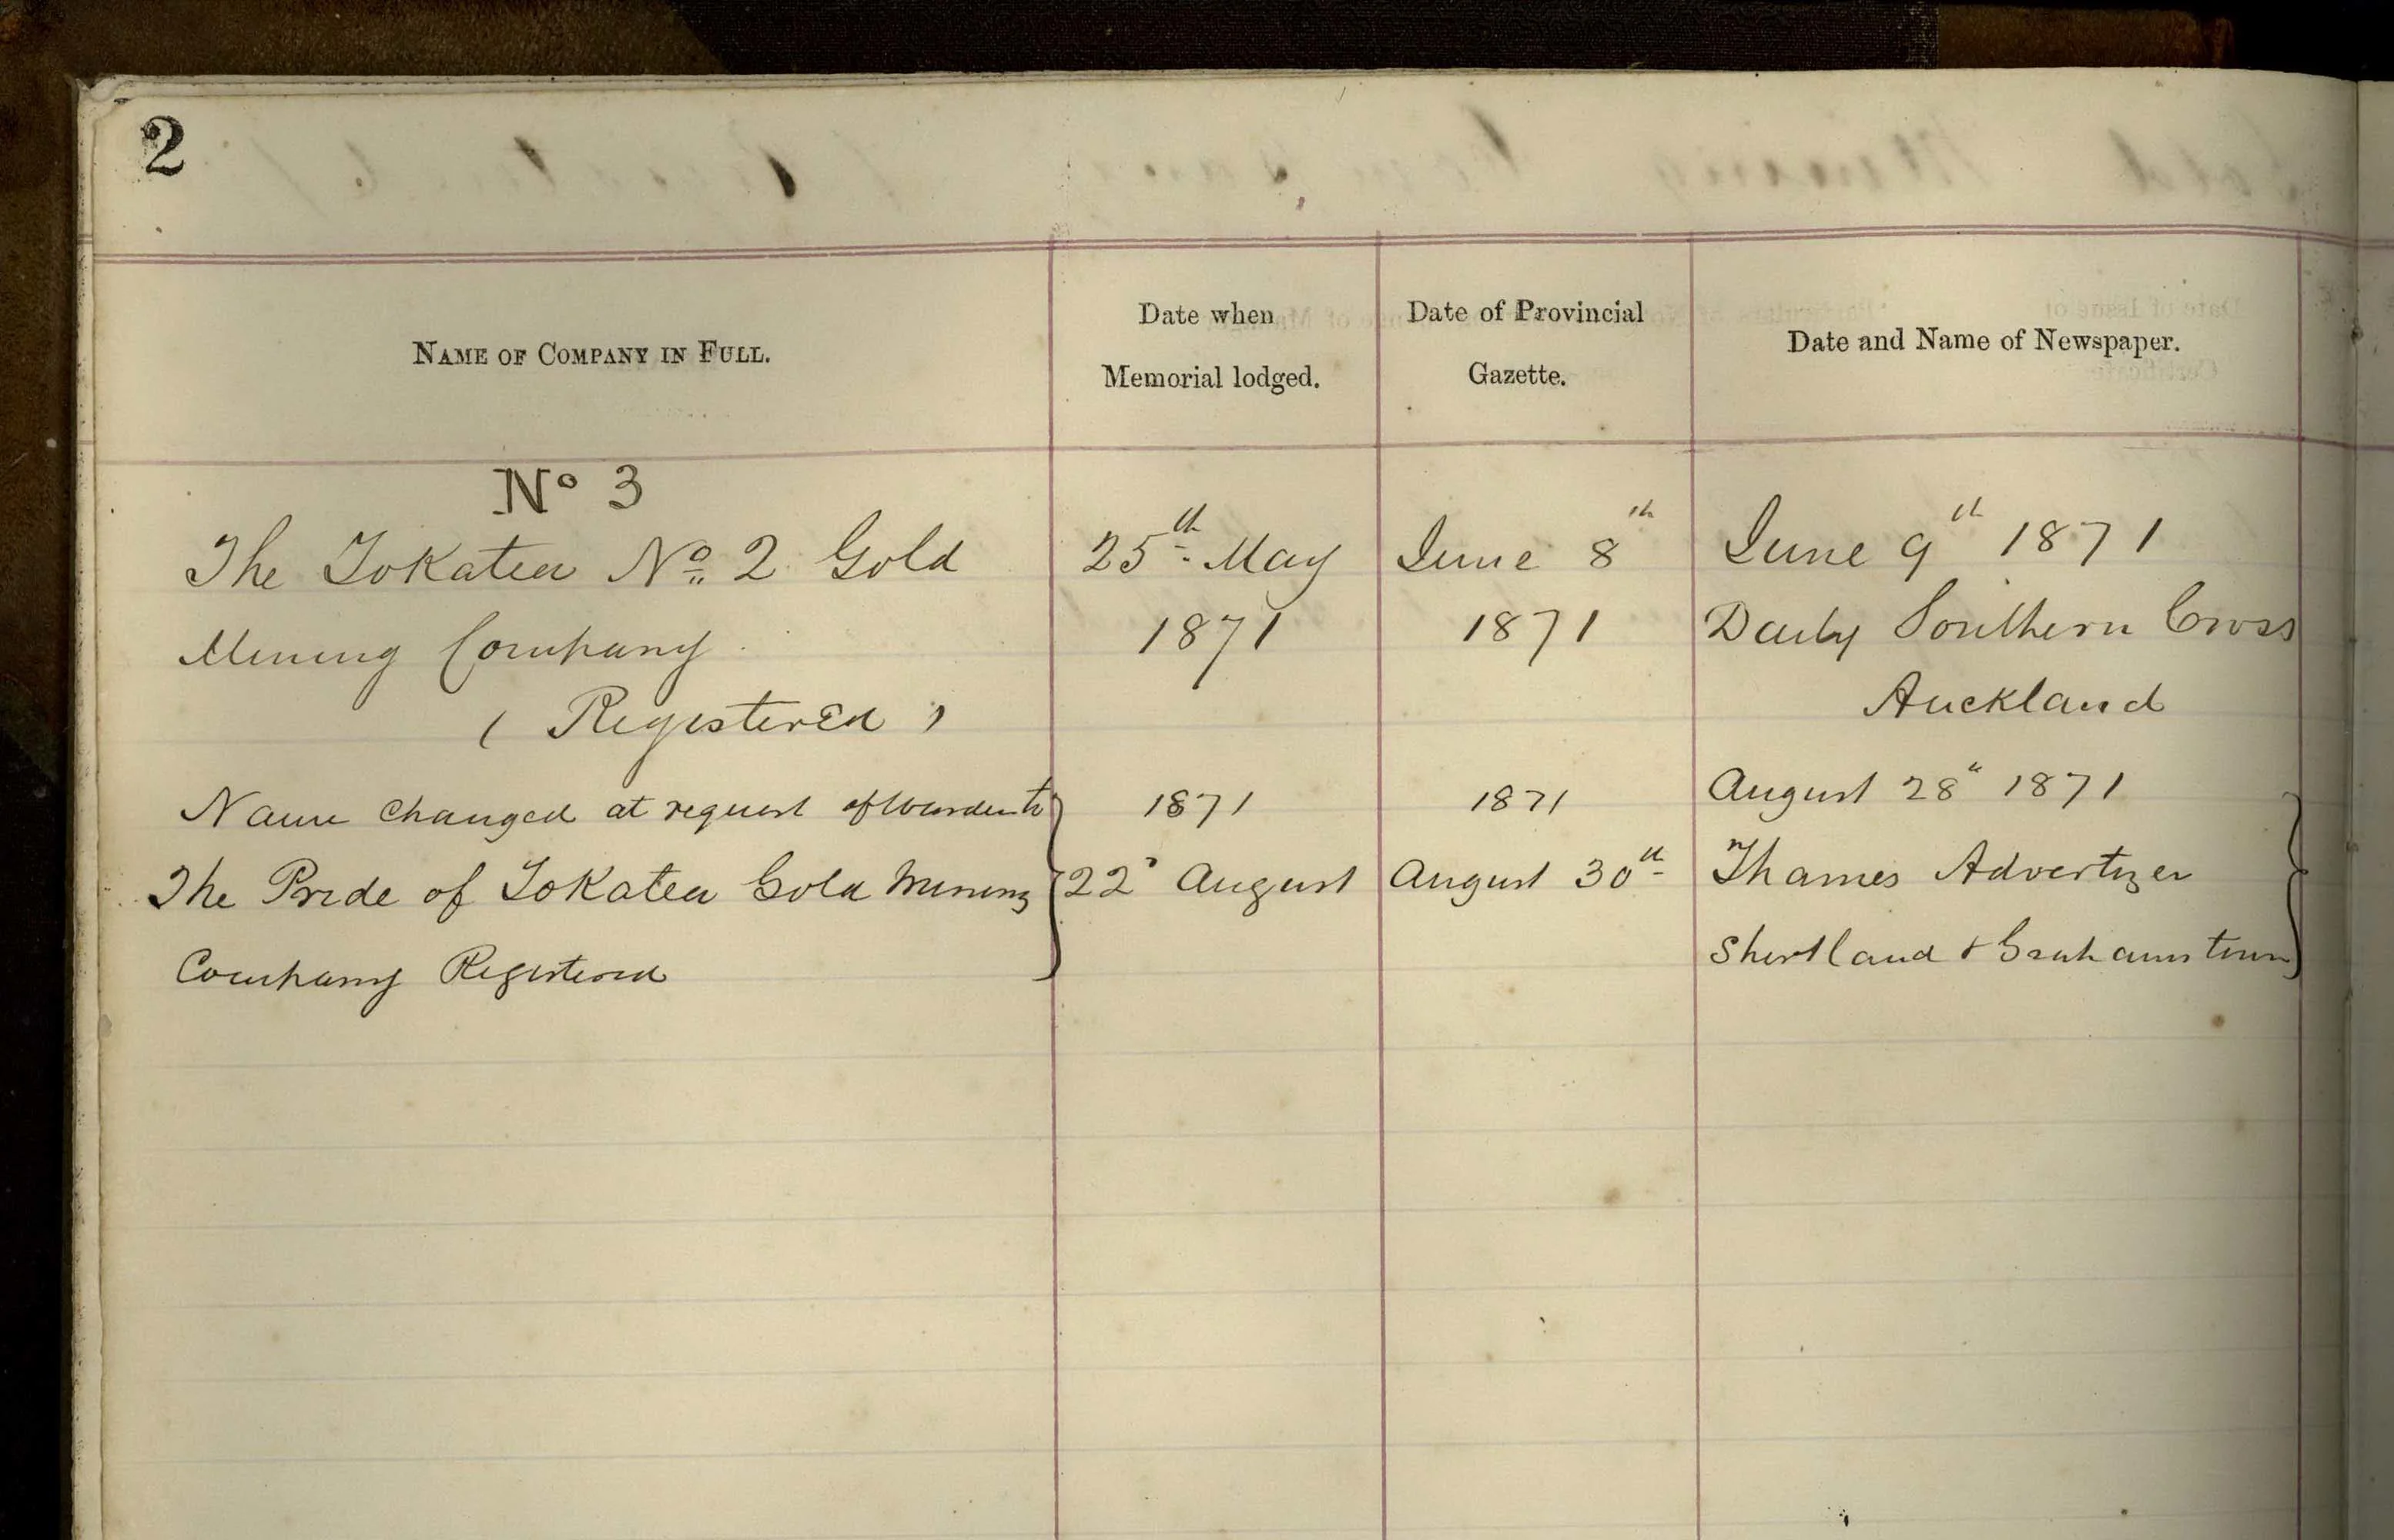 2
NAME OF COMPANY IN FULL.
Date when
Memorial lodged.
Date of Provincial
Gazette.
Date and Name of Newspaper.
No 3
The Tokatea No. 2 Gold
Mining Company
(Registered)
25th May
1871
June 8th
1871
June 9th 1871
Daily Southern Cross
Auckland
Name changed at request of Warden to
The Pride of Tokatea Gold Mining
Company Registered
1871
22d August
1871
August 30th
August 28th 1871
Thames Advertizer
Shortland & Grahamstown